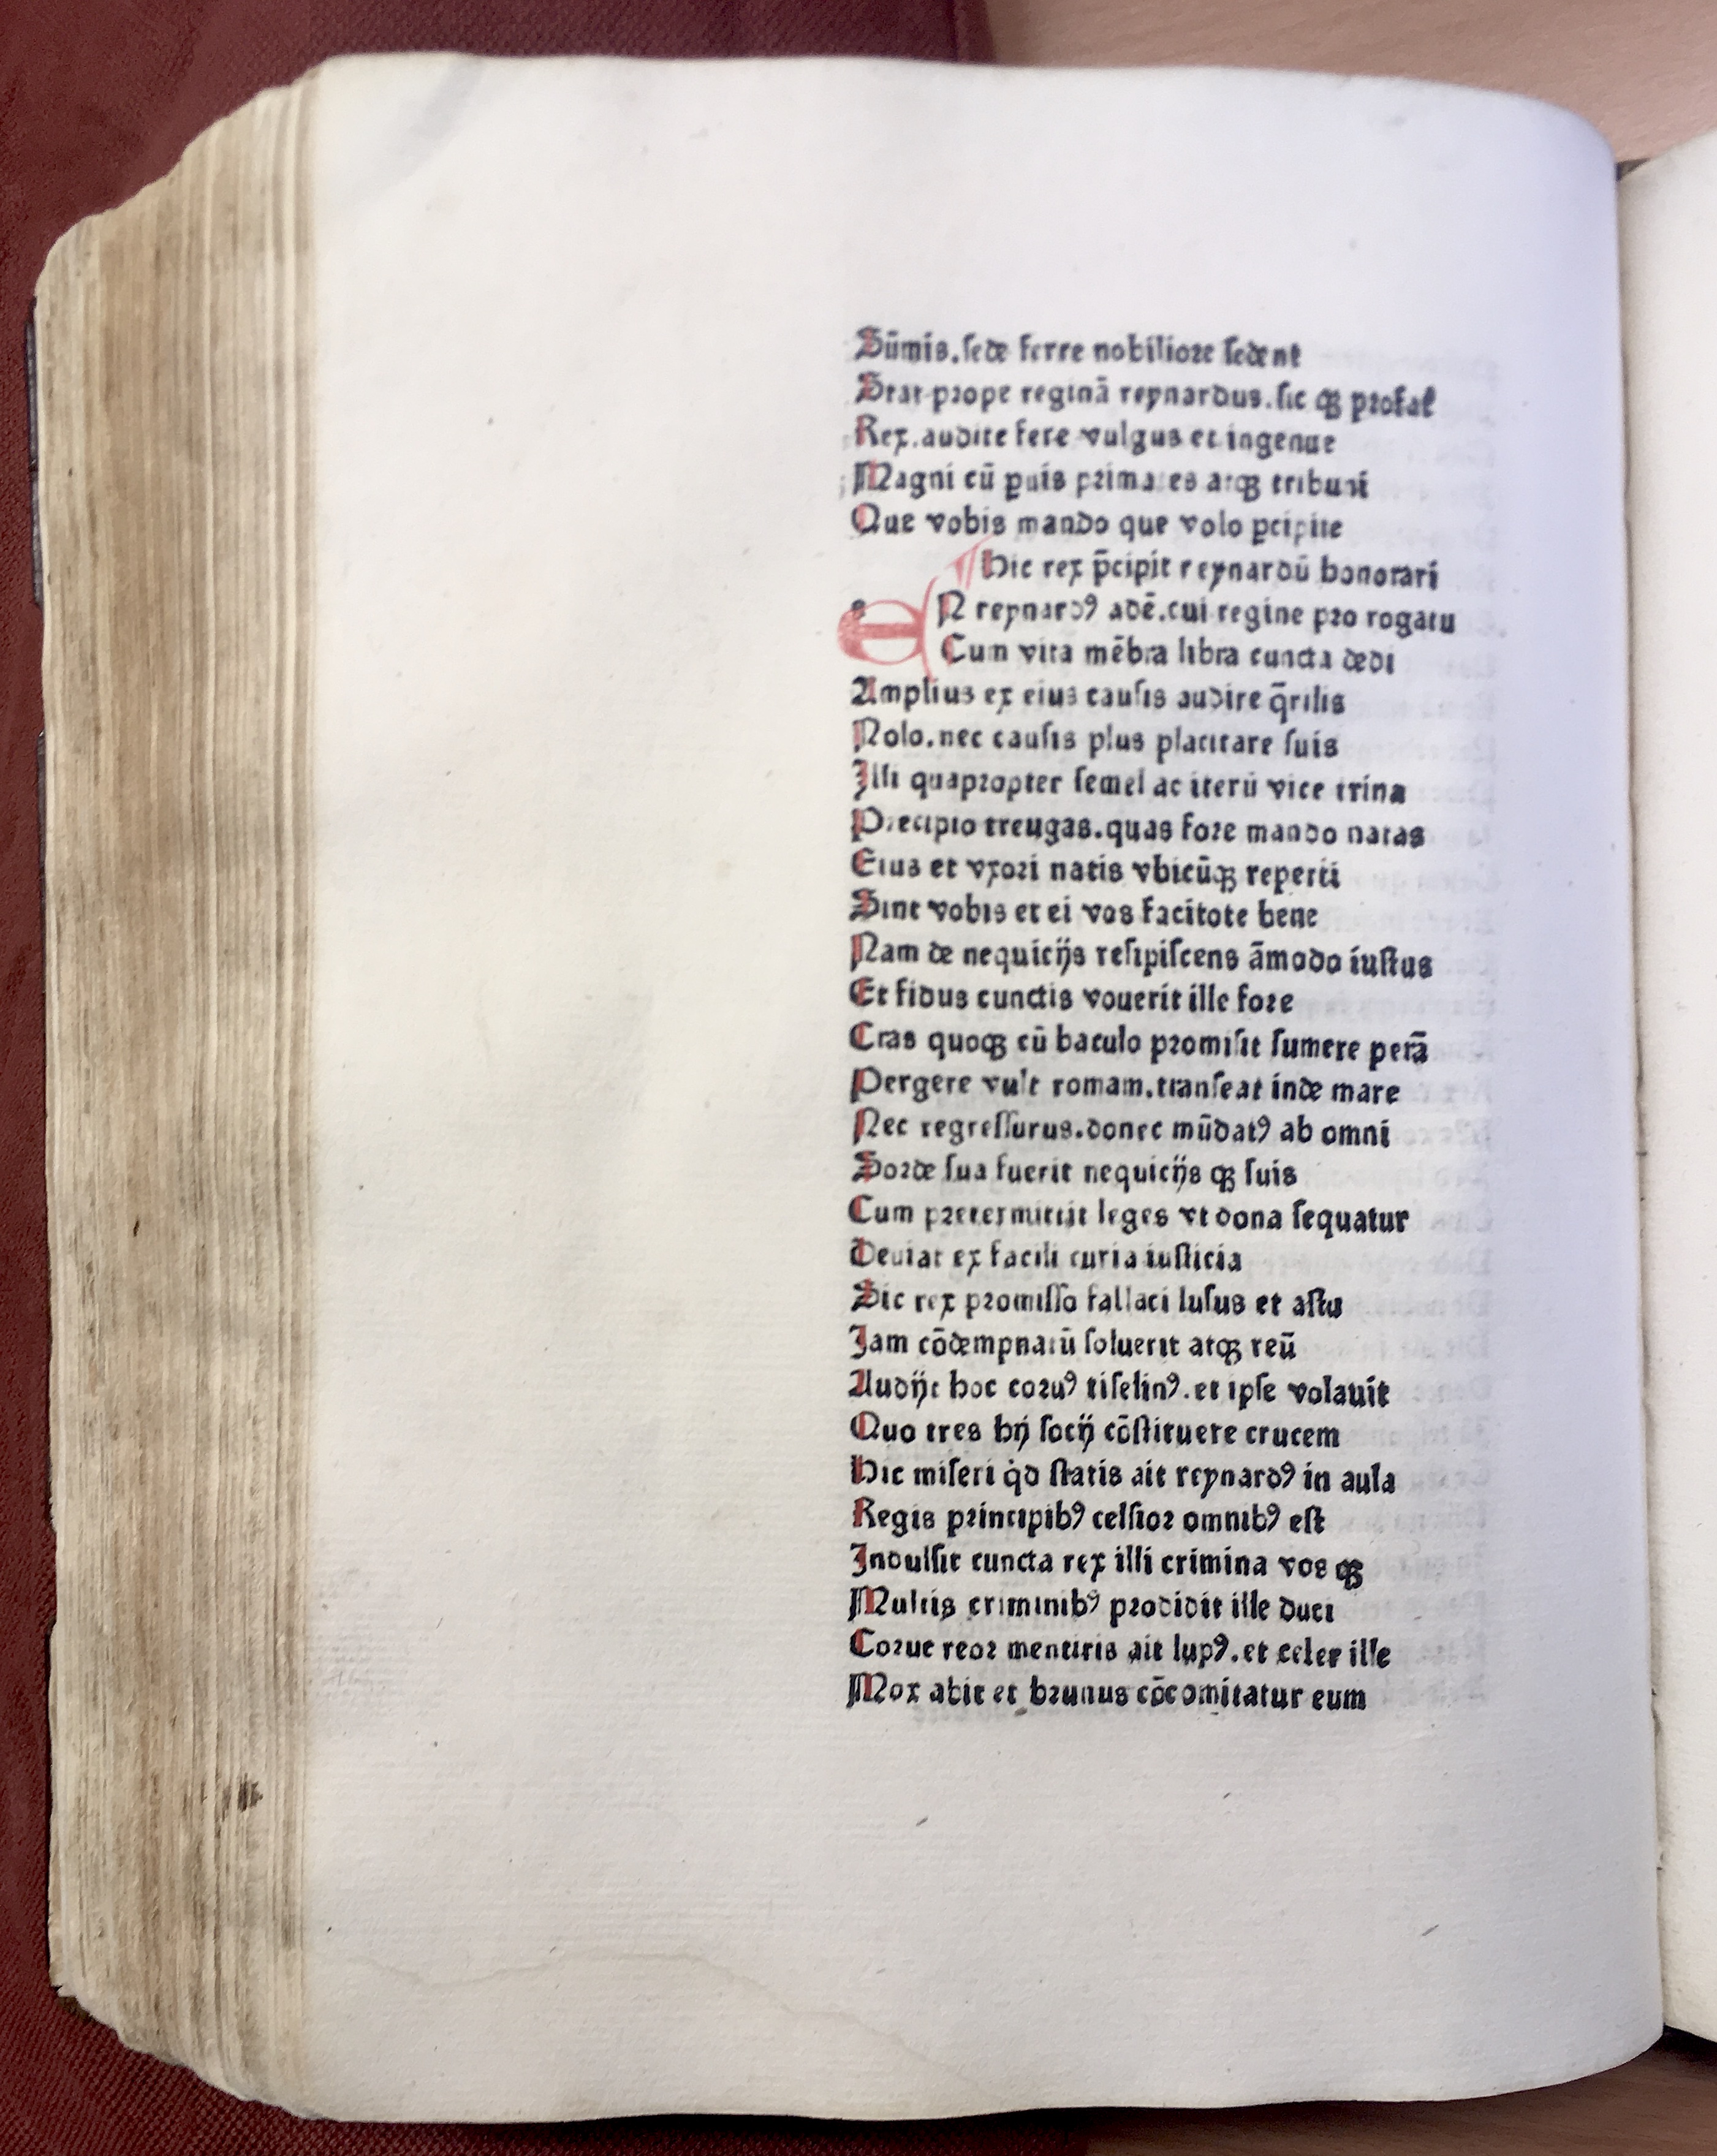 Sūmis.sede ferre nobiliore sedent
Stat prope reginā reynardus.sic qꝫ profat᷑
Rex.audite fere vulgus et ingenue
Magni cū ꝑuis primates atqꝫ tribuni
Que vobis mando que volo ꝑcipite
Hic rex p̄cipit reynardū honorari
eN reynardꝰ adē.cui regine pro rogatu
Cum vita mēbra libra cuncta dedi
Amplius ex eius causis audire q̄rilis
Nolo.nec causis plus placitare suis
Illi quapropter semel ac iterū vice trina
Precipio treugas.quas fore mando natas
Eius et vxori natis vbicūqꝫ reperti
Sint vobis et ei vos facitote bene
Nam de nequicijs resipiscens āmodo iustus
Et fidus cunctis vouerit ille fore
Cras quoqꝫ cū baculo promisit sumere perā
Pergere vult romam.transeat inde mare
Nec regressurus.donec mūdatꝰ ab omni
Sorde sua fuerit nequicijs qꝫ suis
Cum pretermittit leges vt dona sequatur
Deuiat ex facili curia iusticia
Sic rex promisso fallaci lusus et astu
Jam cōdempnatū soluerit atqꝫ reū
Audijt hoc coruꝰ tiselinꝰ.et ipse volauit
Quo tres hij socij cōstituere crucem
Hic miseri qͥd statis ait reynardꝰ in aula
Regis principibꝰ celsior omnibꝰ est
Indulsit cuncta rex illi crimina vos qꝫ
Multis criminibꝰ prodidit ille duci
Corue reor mentiris ait lupꝰ.et celer ille
Mox abit et brunus cōcomitatur eum